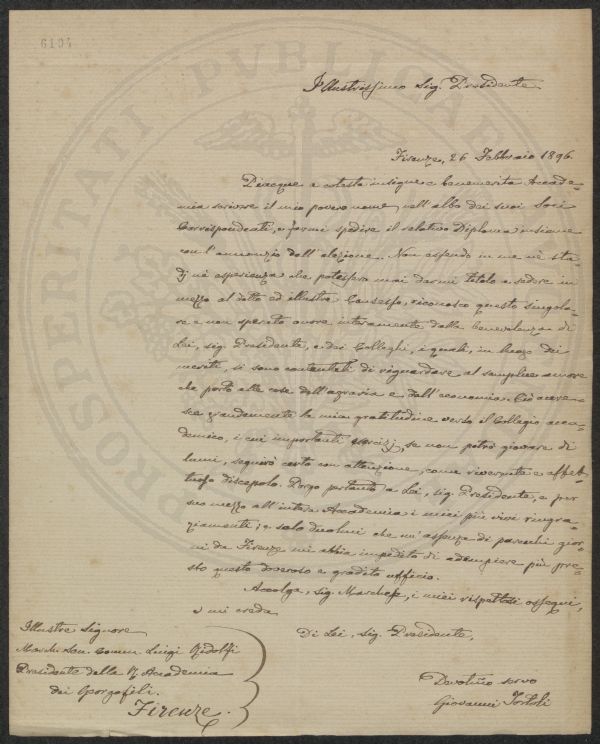 6107
Illustrissimo Sig. Presidente.
Firenze, 26 Febbraio 1896.
Piacque a cotesta insigne e benemerita Accade-
mia scrivere il mio povero nome nell'albo dei suoi Soci
Corrispondenti, e farmi spedire il relativo Diploma insieme
con l'annunzio dell'elezione. Non essendo in me nè stu-
dj nè esperienza che potessero mai darmi titolo a sedere in
mezzo al dotto ed illustre Consesso, riconosco questo singola-
re e non sperato onore interamente dalla benevolenza di
Lei, sig. Presidente, e dei Colleghi, i quali, in luogo dei
meriti, si sono contentati di riguardare al semplice amore
che porto alle cose dell'agraria e dell'economia. Ciò accre-
sce grandemente la mia gratitudine verso il Collegio acca-
demico, i cui importanti esercizj, se non potrò giovare di
lumi, seguirò certo con attenzione, come riverente e affet-
tuoso discepolo. Porgo pertanto a Lei, sig. Presidente, e per
suo mezzo all'intera Accademia i miei più vivi ringra-
ziamenti; e solo duolmi che un'assenza di parecchi gior-
ni da Firenze mi abbia impedito di adempiere più pre-
sto questo doveroso e gradito ufficio.
Accolga, sig. Marchese, i miei rispettosi ossequi,
e mi creda
Di Lei, sig. Presidente,
Illustre Signore
March. Sen. Comm. Luigi Ridolfi
Presidente della R. Accademia
dei Georgofili.
Firenze.
Devotiño servo
Giovanni Tortoli
PROSPERITATI PUBLICAE